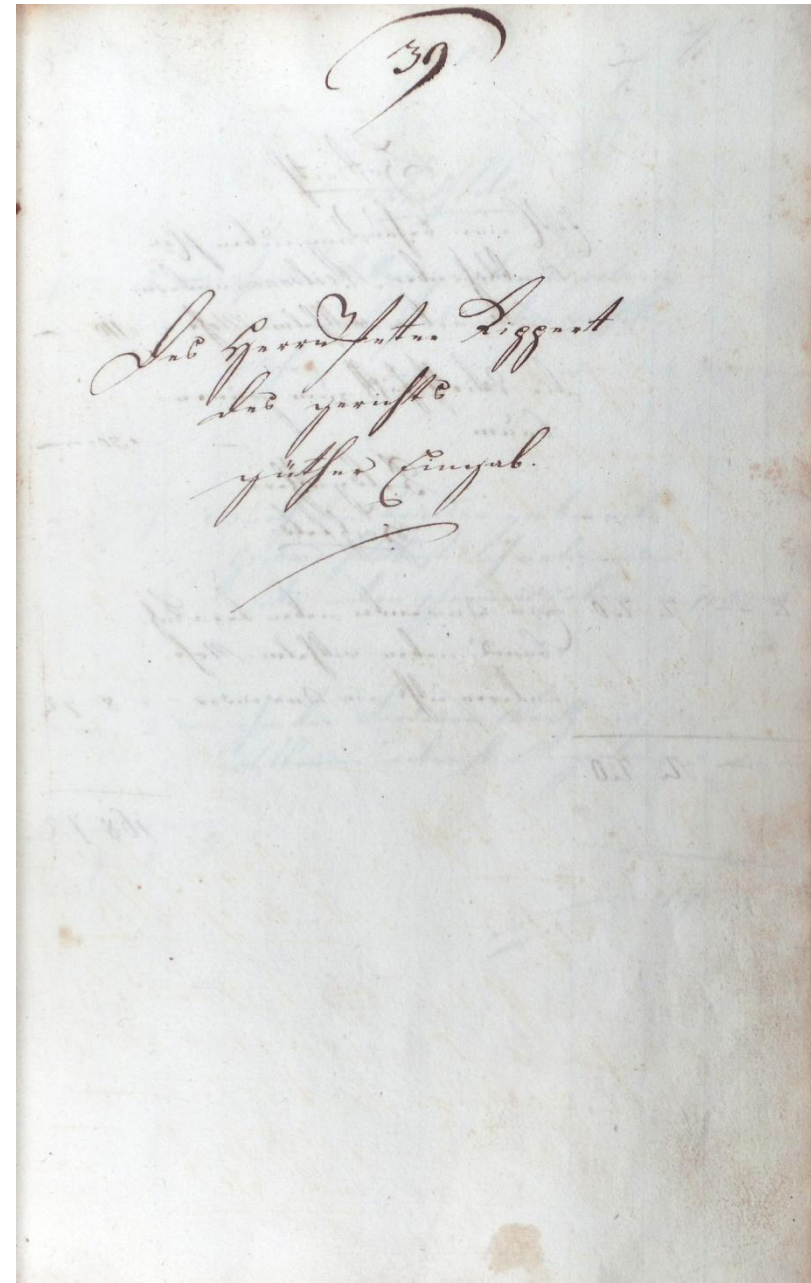 39
Des Herrn Peter Rippert
des gerichts
güther Eingab.